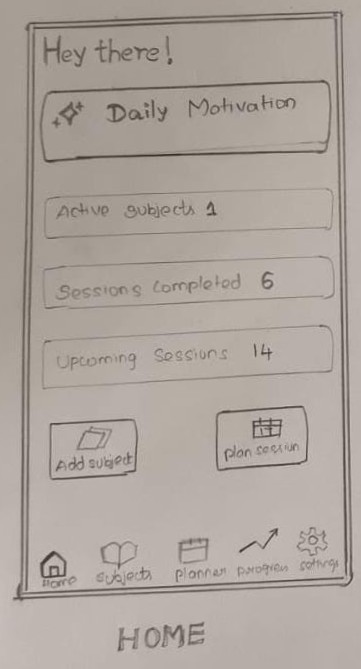 Hey there!
Daily Motivation
Active subjects 1
Sessions completed 6
Upcoming Sessions 14
Add subject
plan session
Home subjects planner progress settings
HOME